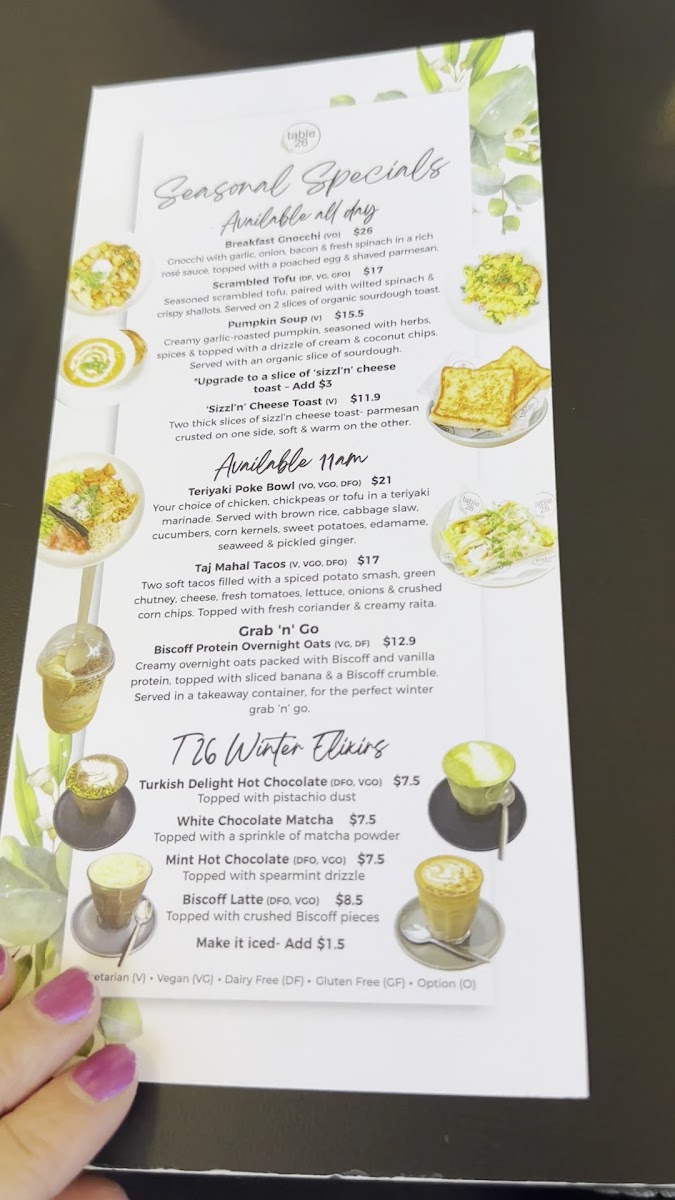 table
26
Seasonal Specials
Available all day
Breakfast Gnocchi (VO) $26
Gnocchi with garlic, onion, bacon & fresh spinach in a rich
rosé sauce, topped with a poached egg & shaved parmesan.
Scrambled Tofu (DF, VG, GFO) $17
Seasoned scrambled tofu, paired with wilted spinach &
crispy shallots. Served on 2 slices of organic sourdough toast.
Pumpkin Soup (V) $15.5
Creamy garlic-roasted pumpkin, seasoned with herbs,
spices & topped with a drizzle of cream & coconut chips.
Served with an organic slice of sourdough.
*Upgrade to a slice of 'sizzl'n' cheese
toast - Add $3
'Sizzl'n' Cheese Toast (V) $11.9
Two thick slices of sizzl'n cheese toast- parmesan
crusted on one side, soft & warm on the other.
Available 11am
Teriyaki Poke Bowl (VO, VGO, DFO) $21
Your choice of chicken, chickpeas or tofu in a teriyaki
marinade. Served with brown rice, cabbage slaw,
cucumbers, corn kernels, sweet potatoes, edamame,
seaweed & pickled ginger.
table
26
Taj Mahal Tacos (V, VGO, DFO) $17
Two soft tacos filled with a spiced potato smash, green
chutney, cheese, fresh tomatoes, lettuce, onions & crushed
corn chips. Topped with fresh coriander & creamy raita.
Grab 'n' Go
Biscoff Protein Overnight Oats (VG, DF) $12.9
Creamy overnight oats packed with Biscoff and vanilla
protein, topped with sliced banana & a Biscoff crumble.
Served in a takeaway container, for the perfect winter
grab 'n' go.
T26 Winter Elixirs
Turkish Delight Hot Chocolate (DFO, VGO) $7.5
Topped with pistachio dust
White Chocolate Matcha $7.5
Topped with a sprinkle of matcha powder
Mint Hot Chocolate (DFO, VGO) $7.5
Topped with spearmint drizzle
Biscoff Latte (DFO, VGO) $8.5
Topped with crushed Biscoff pieces
Make it iced- Add $1.5
etarian (V) • Vegan (VG) • Dairy Free (DF) • Gluten Free (GF) • Option (O)